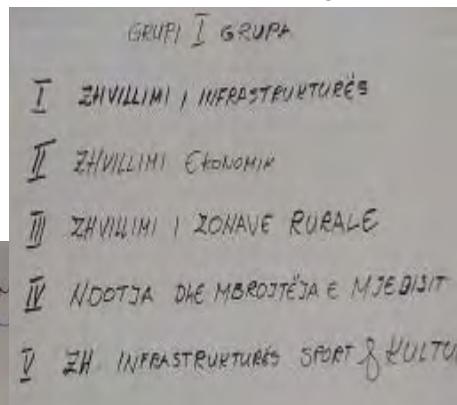 GRUPI I GRUPA
I ZHVILLIMI I INFRASTRUKTURËS
II ZHVILLIMI EKONOMIK
III ZHVILLIMI I ZONAVE RURALE
IV NDOTJA DHE MBROJTËJA E MJEDISIT
V ZH. INFRASTRUKTURËS SPORT & KULTU